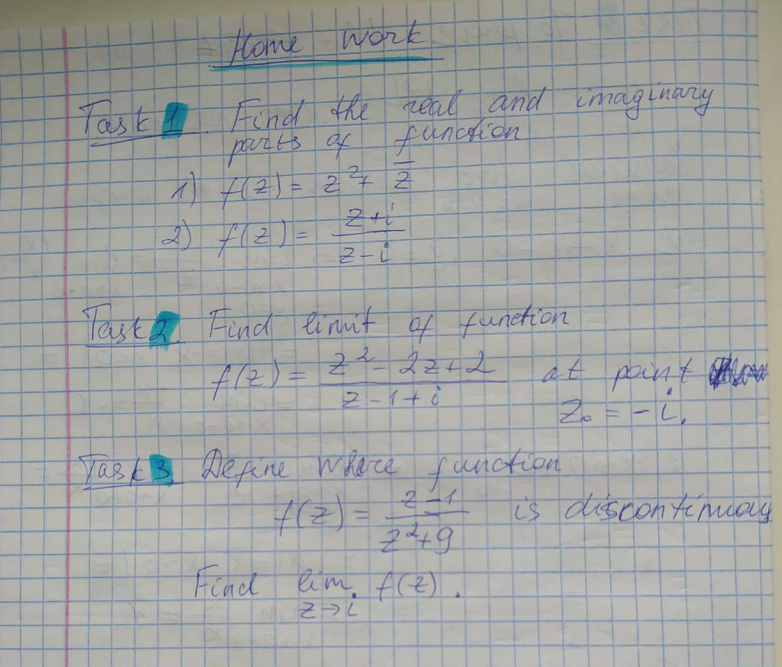 Home work
Task 1. Find the real and imaginary
parts of function
1) f(z) = z² + z̄
2) f(z) = (z+i)/(z-i)
Task 2. Find limit of function
f(z) = (z² - 2z + 2)/(z - 1 + i) at point
z₀ = -i.
Task 3. Define where function
f(z) = (z-1)/(z²+9) is discontinuous
Find lim f(z).
z→i